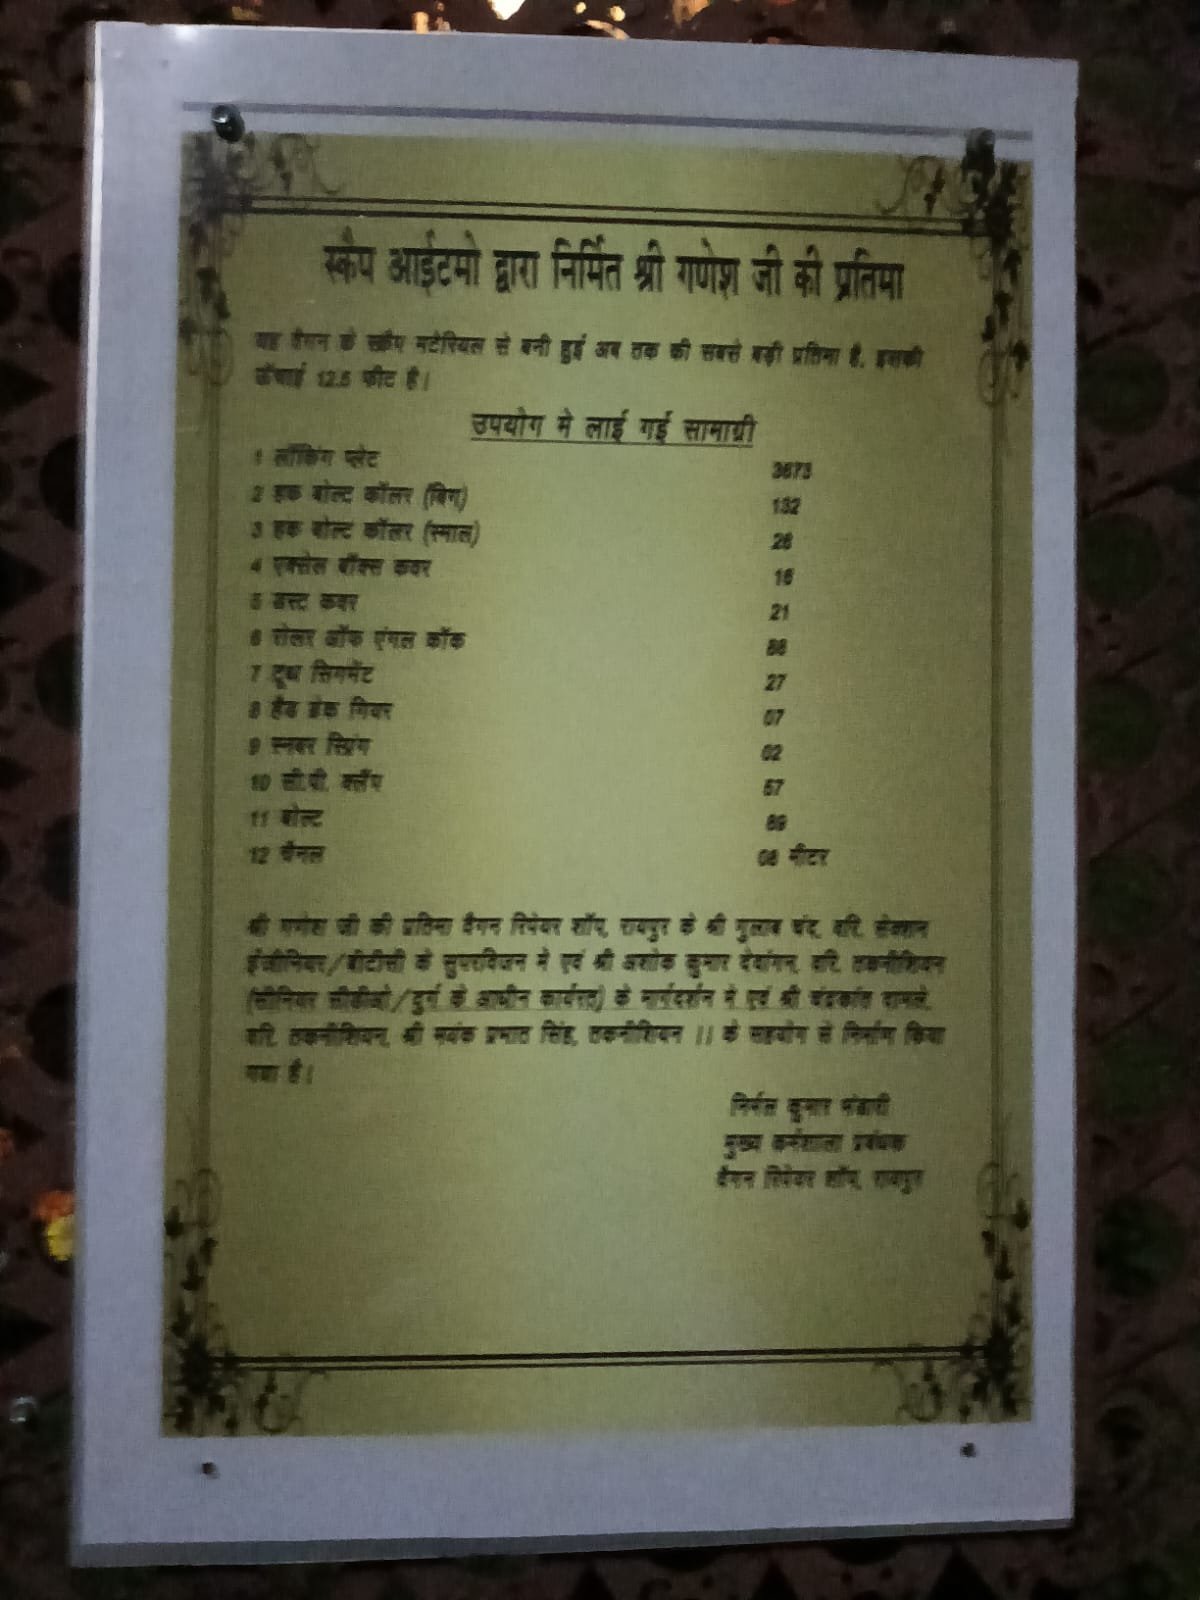 स्क्रैप आईटमो द्वारा निर्मित श्री गणेश जी की प्रतिमा
यह वैगन के स्क्रैप मटेरियल से बनी हुई अब तक की सबसे बड़ी प्रतिमा है, इसकी
ऊँचाई 12.5 फीट है।
उपयोग मे लाई गई सामाग्री
1 लॉकिंग प्लेट 3673
2 हक बोल्ट कॉलर (बिग) 132
3 हक बोल्ट कॉलर (स्माल) 26
4 एक्सेल बॉक्स कवर 16
5 डस्ट कवर 21
6 रोलर ऑफ एंगल कॉक
7 टूथ सिगमेंट 27
8 हैंड ब्रेक गियर 07
9 स्नबर स्प्रिंग 02
10 सी.पी. क्लैंप 57
11 बोल्ट
12 चैनल 08 मीटर
श्री गणेश जी की प्रतिमा वैगन रिपेयर शॉप, रायपुर के श्री गुलाब चंद, वरि. सेक्शन
ईंजीनियर/बीटीसी के सुपरविजन मे एवं श्री अशोक कुमार देवांगन, वरि. तकनीशियन
(सीनियर सीडीओ/दुर्ग के आधीन कार्यरत) के मार्गदर्शन मे एवं श्री चंद्रकांत दामले,
वरि. तकनीशियन, श्री मयंक प्रभात सिंह, तकनीशियन ।। के सहयोग से निर्माण किया
गया है।
निर्मल कुमार भंडारी
मुख्य कर्मशाला प्रबंधक
वैगन रिपेयर शॉप, रायपुर